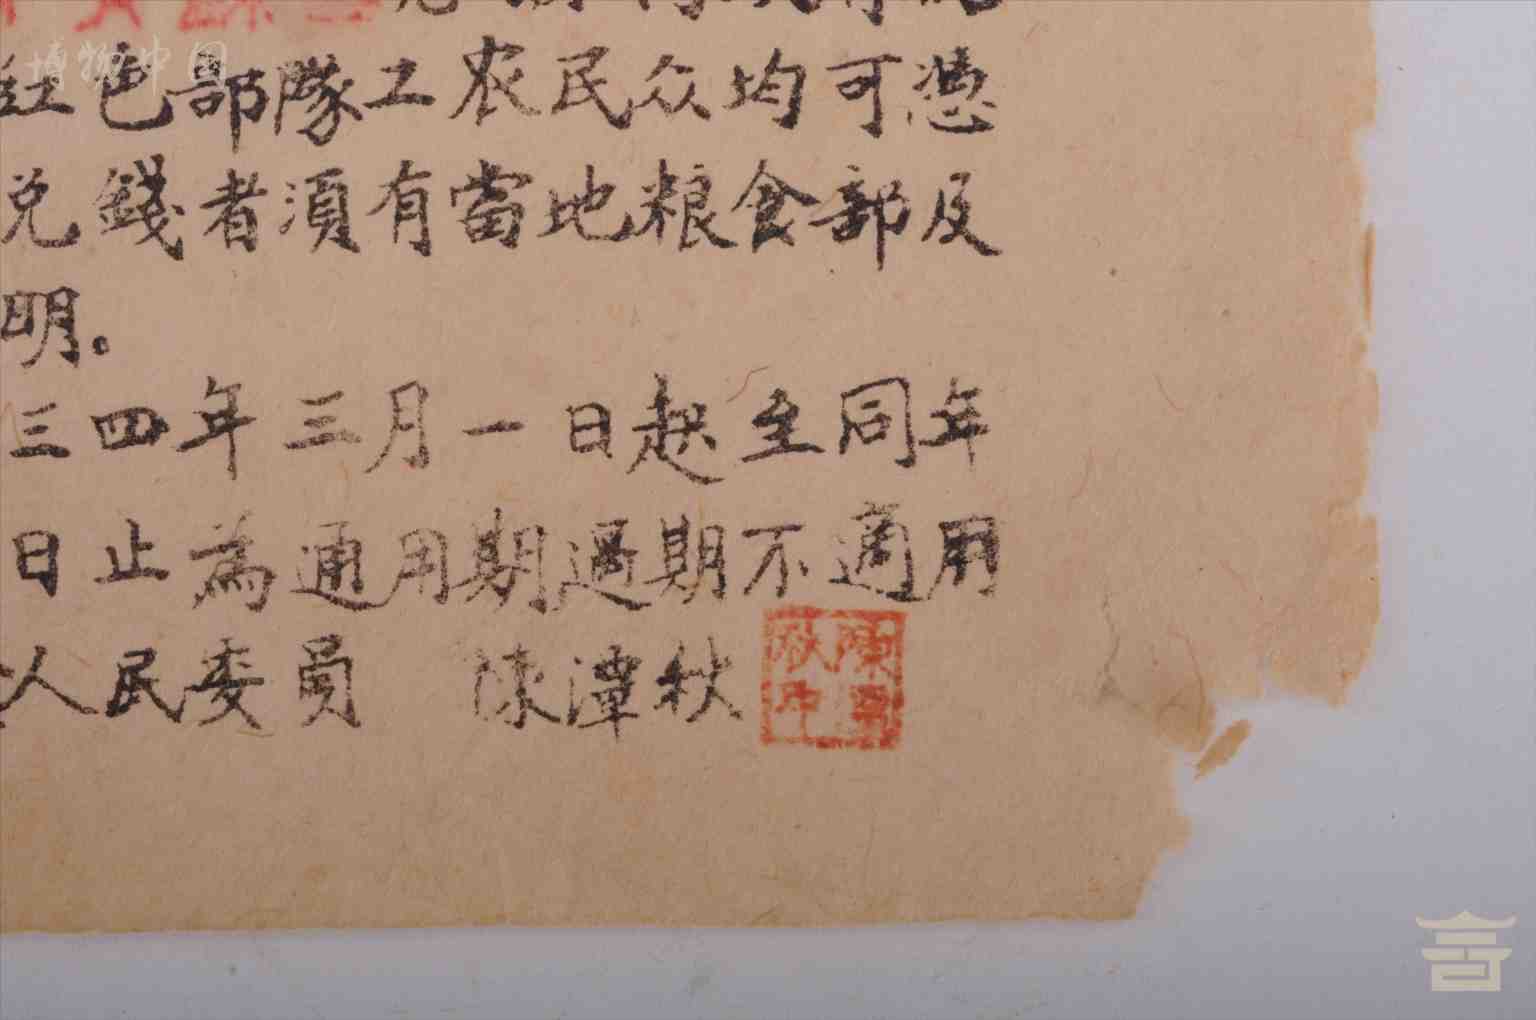 博物中国
红色部隊工农民众均可憑
兑錢者須有當地粮食部及
明。
三四年三月一日起至同年
日止為通用期過期不適用
人民委員 陳潭秋